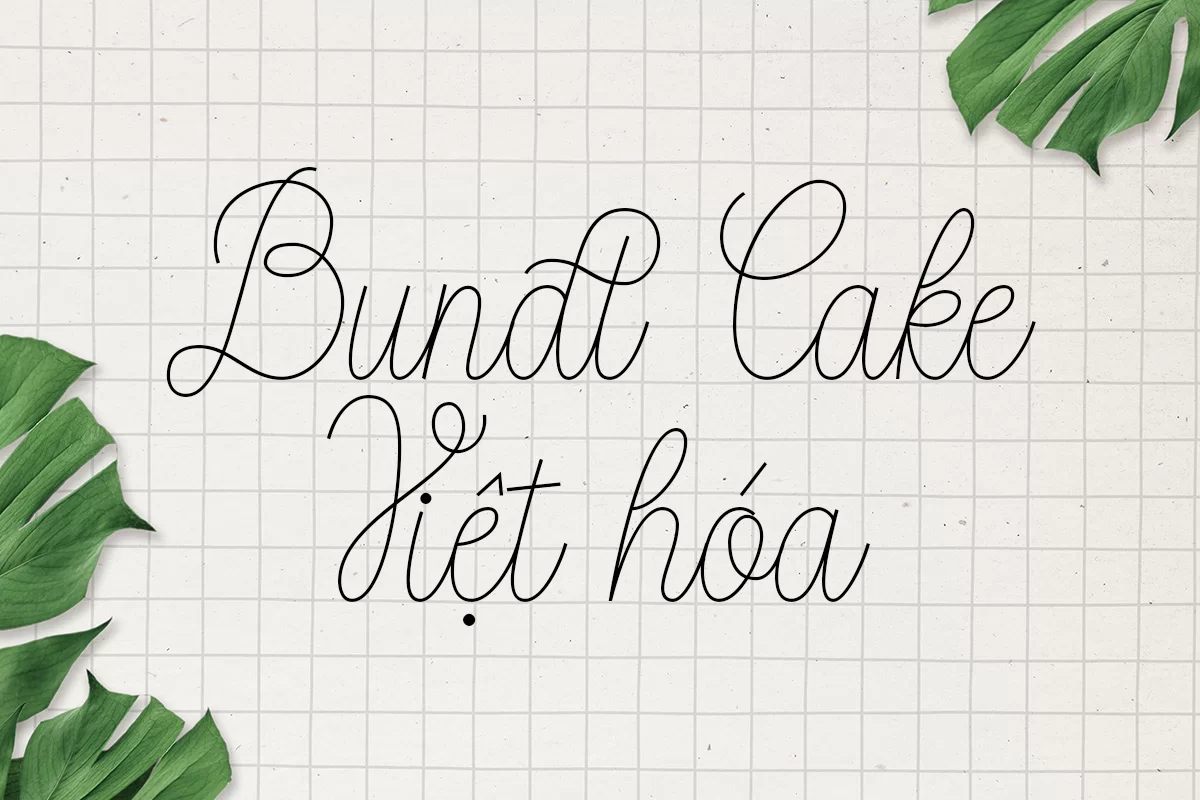 Bundt Cake
Việt hóa